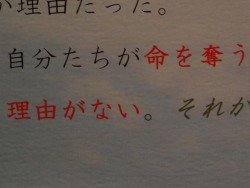 理由だった。
自分たちが命を奪う
理由がない。それが